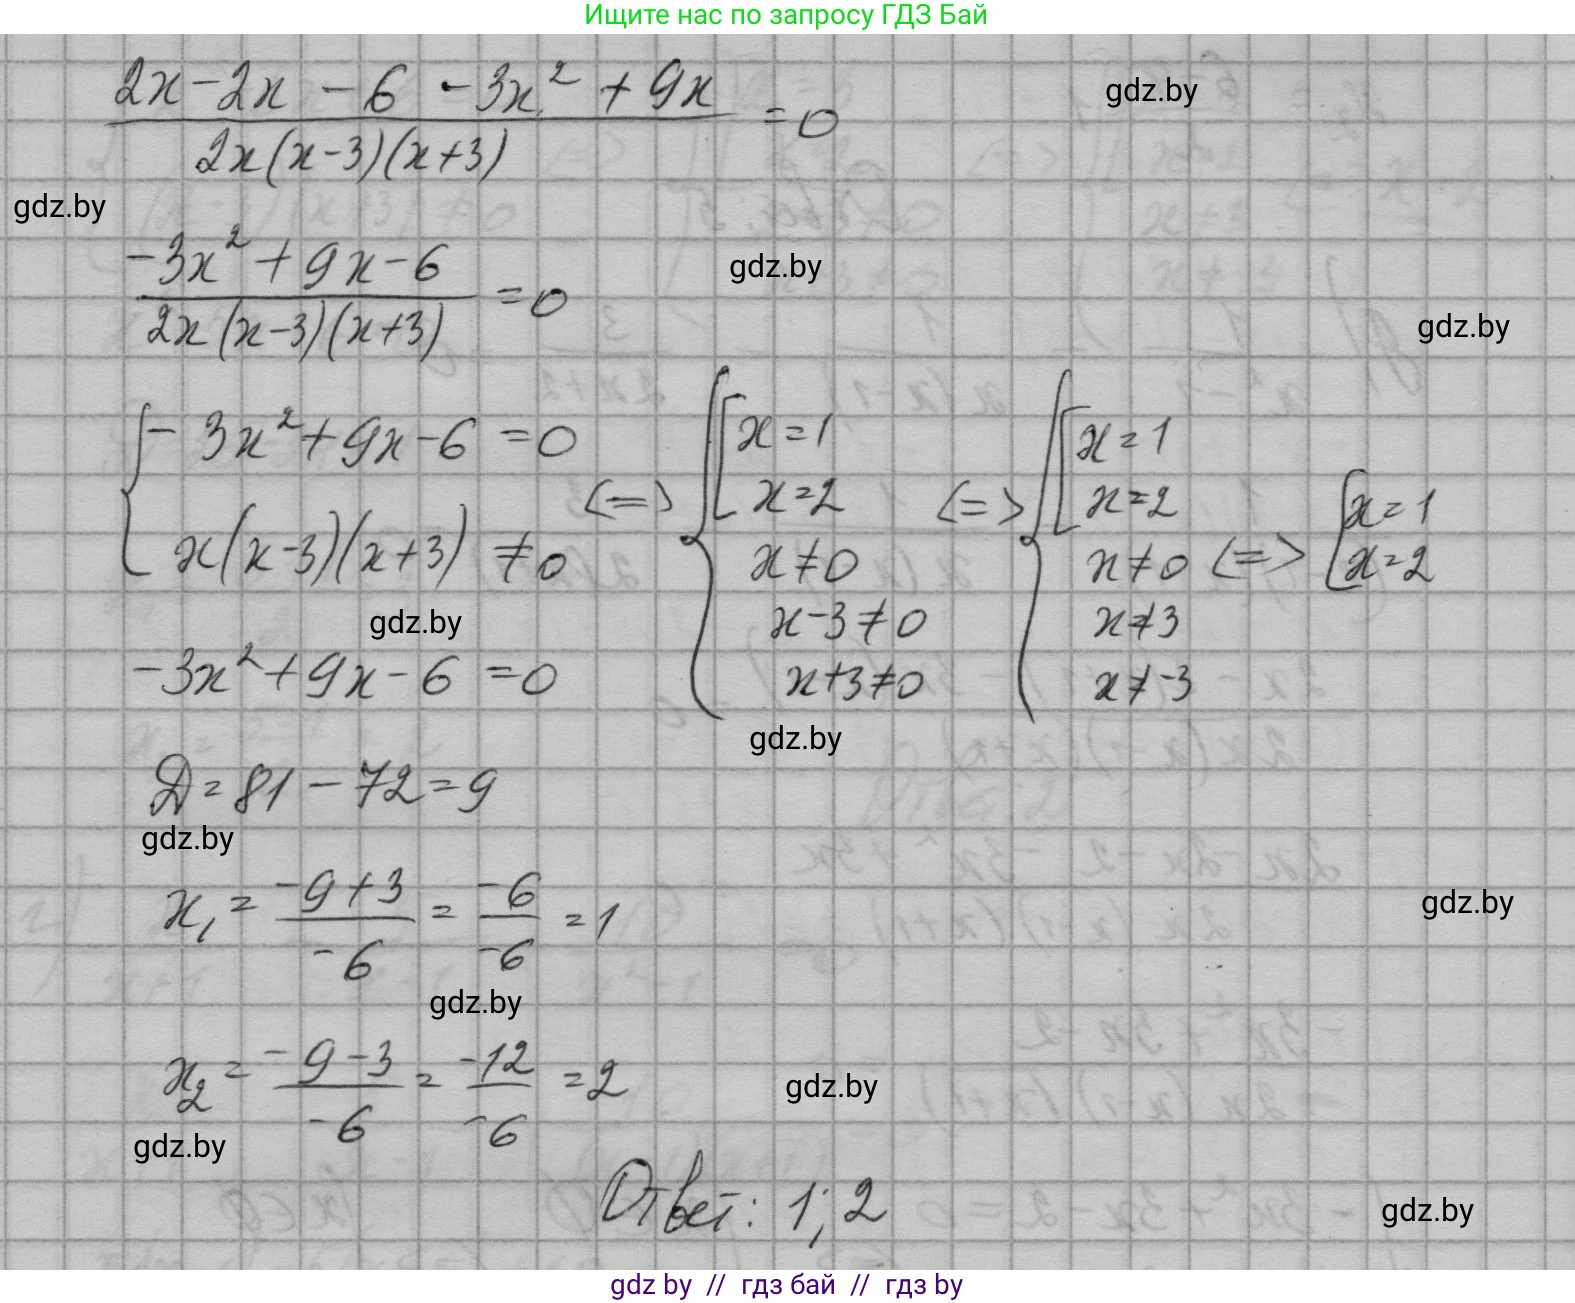 Ищите нас по запросу ГДЗ Бай
2x-2x-6-3x²+9x / 2x(x-3)(x+3) = 0
gdz.by
gdz.by
-3x²+9x-6 / 2x(x-3)(x+3) = 0
gdz.by
gdz.by
{ -3x²+9x-6=0 <=> { [ x=1 <=> { [ x=1
x=2 x=2 <=> [ x=1
x(x-3)(x+3)≠0 x≠0 x≠0 x=2
x-3≠0 x≠3
x+3≠0 x≠-3
gdz.by
-3x²+9x-6=0
gdz.by
Д=81-72=9
gdz.by
x₁ = -9+3 / -6 = -6 / -6 = 1
gdz.by
gdz.by
x₂ = -9-3 / -6 = -12 / -6 = 2
gdz.by
gdz.by
Ответ: 1; 2
gdz.by
gdz by // гдз бай // гдз by